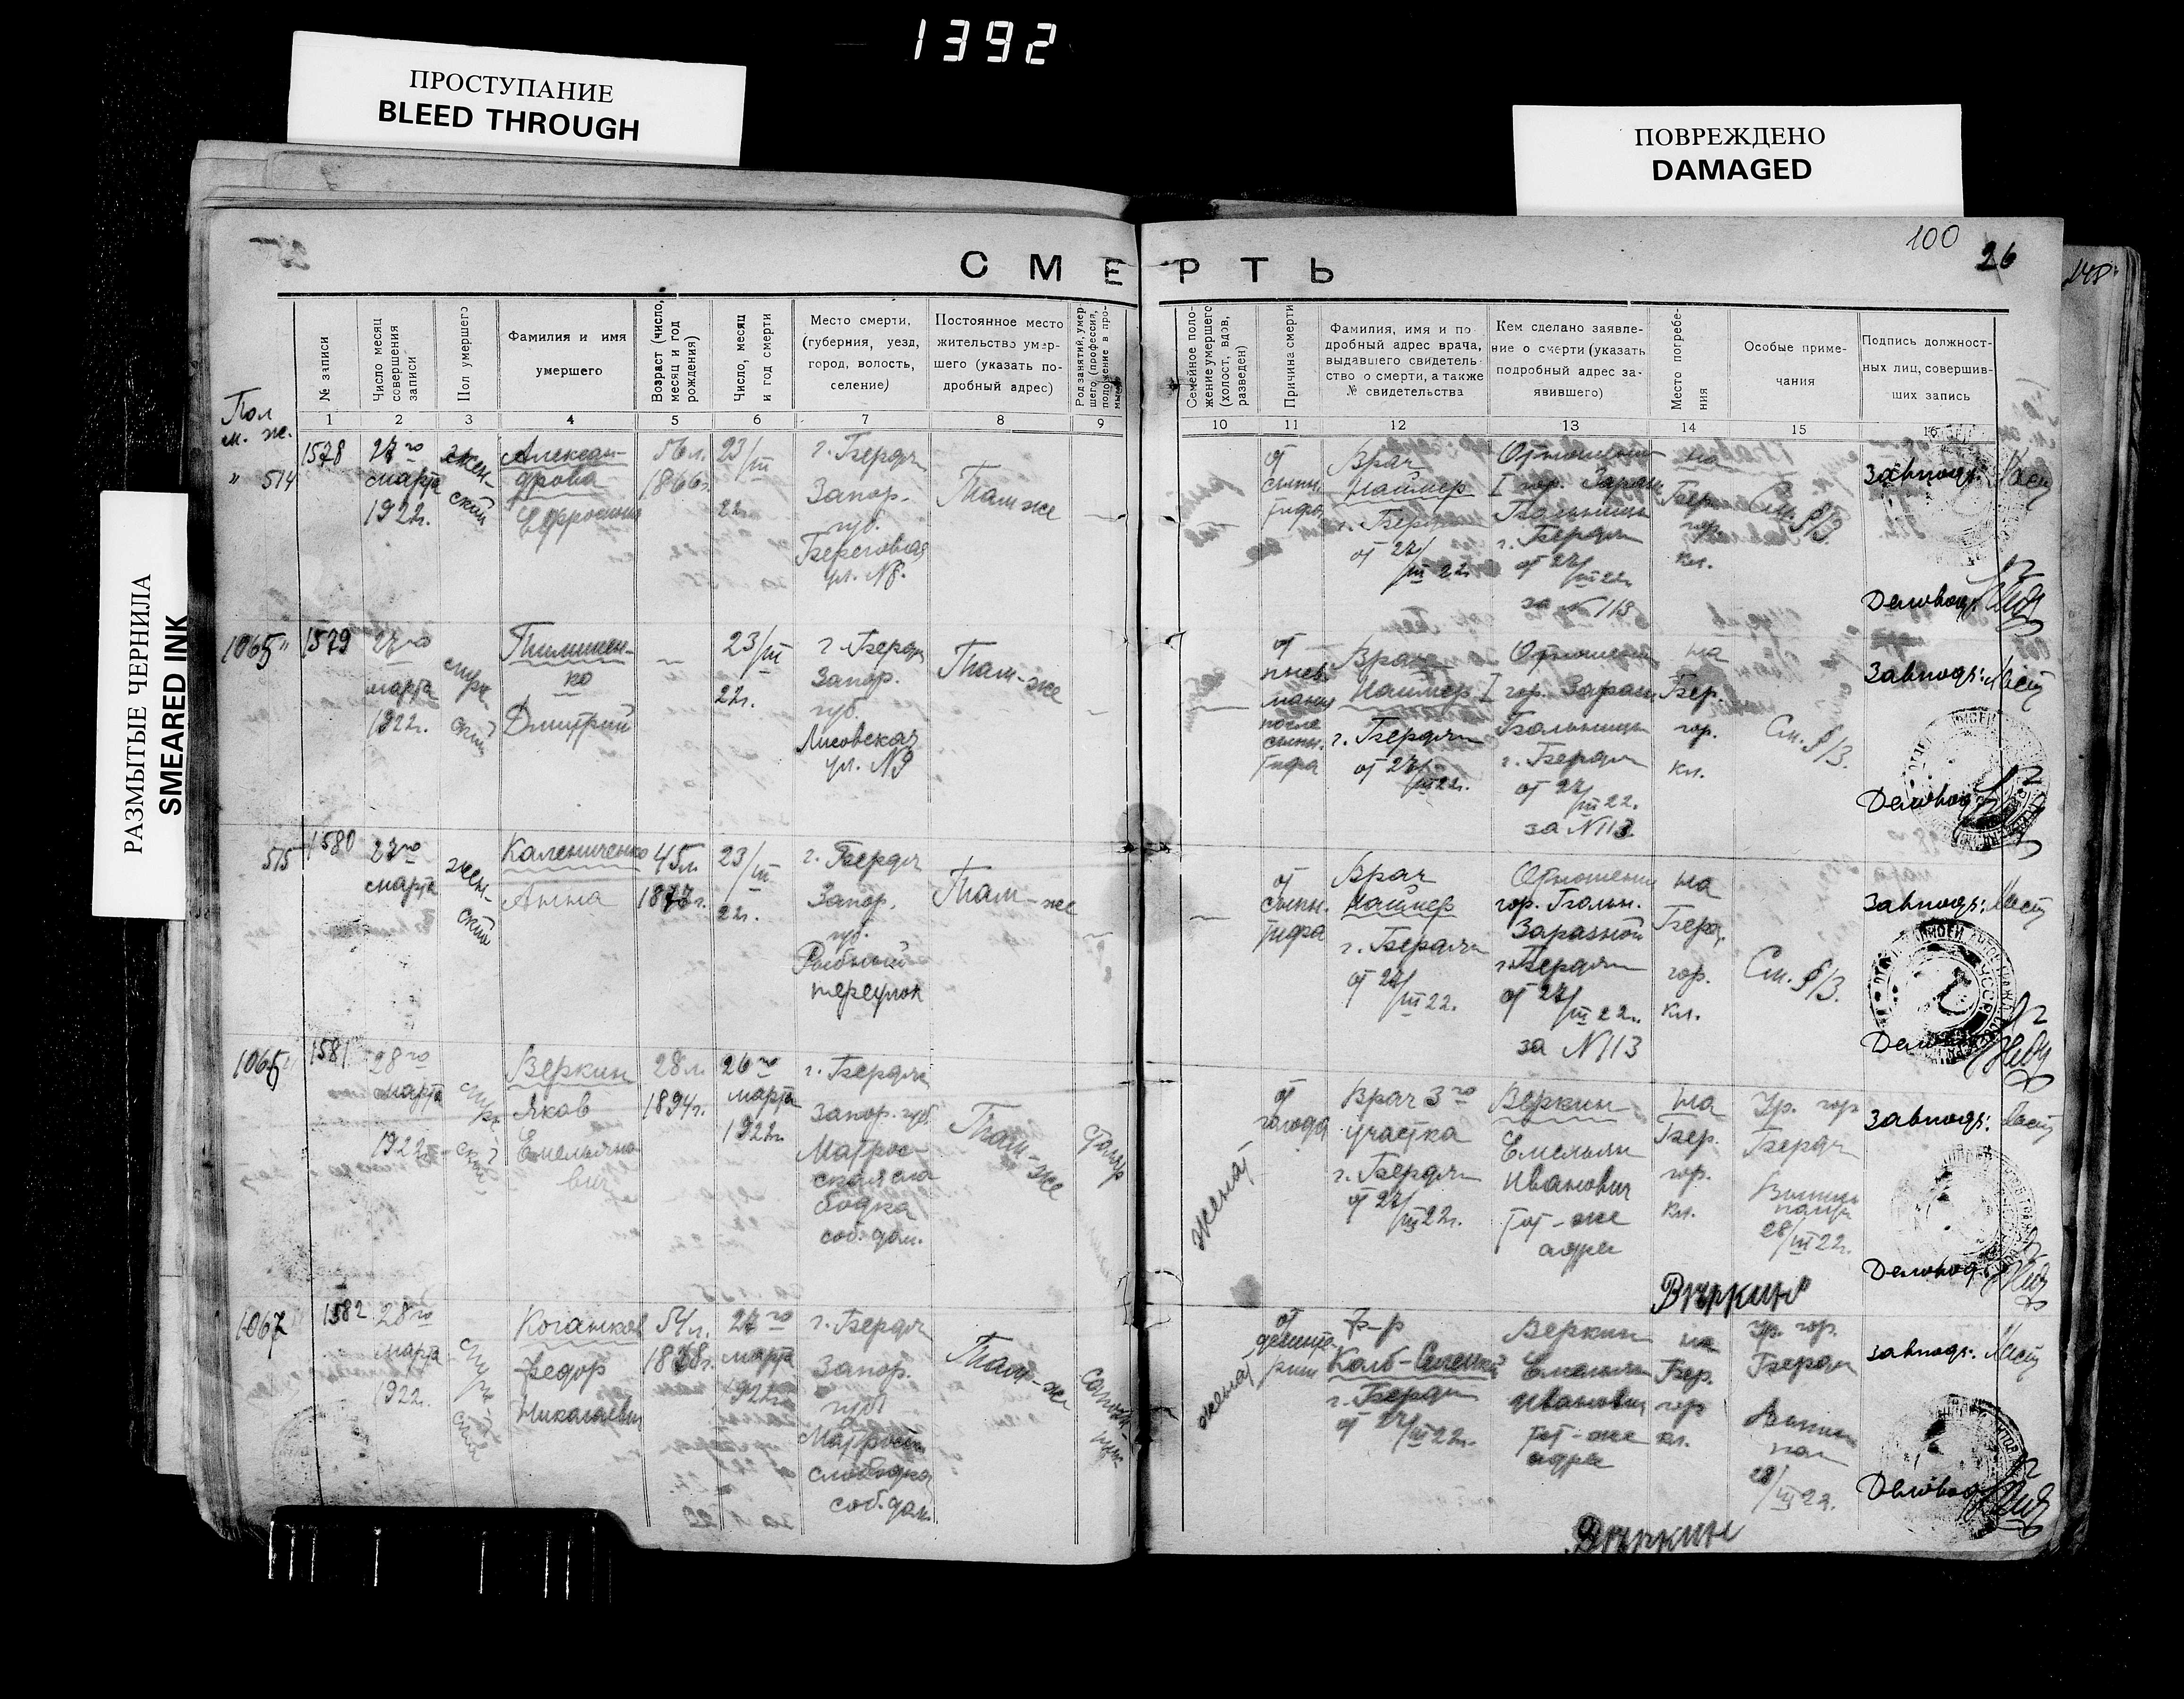 1392
ПРОСТУПАНИЕ
BLEED THROUGH
ПОВРЕЖДЕНО
DAMAGED
РАЗМЫТЫЕ ЧЕРНИЛА
SMEARED INK
100
26
148
СМЕРТЬ
№ записи
Число месяц совершения записи
Пол умершего
Фамилия и имя
умершего
Возраст (число, месяц и год рождения)
Число, месяц и год смерти
Место смерти,
(губерния, уезд,
город, волость,
селение)
Постоянное место
жительство умер-
шего (указать по-
дробный адрес)
Семейное поло-
жение умершего
(холост, вдов,
разведен)
Причина смерти
Фамилия, имя и по
дробный адрес врача,
выдавшего свидетель-
ство о смерти, а также
№ свидетельства
Кем сделано заявле-
ние о смерти (указать
подробный адрес за-
явившего)
Место погребе-
ния
Особые приме-
чания
Подпись должност-
ных лиц, совершив-
ших запись
1 2 3 4 5 6 7 8 9 10 11 12 13 14 15 16
Пол
м. ж.
" 514
1578
27го
марта
1922г.
жен-
ский
Алексан-
дрова
Ефросиния
56л.
1866г.
23/III
22г.
г. Бердян
Запор.
губ.
Береговая
ул. №8.
Там же
от
сыпн.
тифа
Врач
г. Бердян
от 27/III 22г.
Отношение
I гор. Зараз.
Больницы
г. Бердян
от 27/III 22г.
за №113
на
Бер.
гор.
кл.
См. §/3.
Завподъ:
Деловод:
1065 "
1579
27го
марта
1922г.
муж
ский
Дмитрий
23/III
22г.
г. Бердян
Запор.
губ.
Лисовская
ул. №9
Там-же
от
после
сыпн.
тифа
Врач
г. Бердян
от 27/III 22г.
Отношение
I гор. Зараз.
Больницы
г. Бердян
от 27/III 22.
за №113
на
Бер.
гор.
кл.
См. §/3.
Завподъ:
Деловод
515
1580
27го
марта
жен-
ский
Калениченко
Анна
45л.
1877г.
23/III
22г.
г. Бердян
Запор.
губ.
Рыбный
переулок
Там-же
от
сыпн.
тифа
Врач
г. Бердян
от 27/III 22.
Отношение
гор. Больн.
Заразной
г. Бердян
от 27/III 22г.
за №113
на
Бер.
гор.
кл.
См. §/3.
Завподъ:
Деловод
1066
1581
28го
марта
1922г.
муж-
ской
Веркин
Яков
Емельяно
вич
28л.
1894г.
26го
марта
1922г.
г. Бердян
Запор. губ
Матрос-
ская сло
бодка
соб. дом.
Там-же
столяр
женат
от
голода
Врач 3го
участка
г. Бердян
от 27/III 22г.
Веркин
Емельян
Иванович
тот-же
адрес
на
Бер.
гор.
кл.
Гр. гор
Бердян
28/III 22г.
Завподъ:
Деловод:
Въркинъ
1067
1582
28го
марта
1922.
муж-
ский
Коганков
Федор
Николаевич
54л.
1868г.
27го
марта
1922г.
г. Бердян
Запор.
губ
Матросск
слободка
соб. дом
Там-же
женат
от
Д-р
г. Бердян
от 27/III 22г.
Веркин
Емельян
Иванович
тот-же
адрес
на
Бер.
гор
кл.
Гр. гор.
Бердян
28/III 22.
Завподъ:
Деловод
Въркинъ